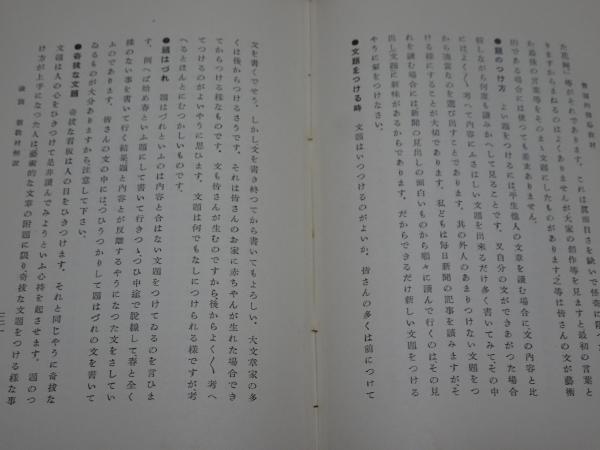 た花瓶」等がそれであります。これは眞面目さを缺いで怪奇に陷
りますからまねるのはよくありませんが大家の創作等を見ますと最初の言葉と
た最後の言葉等をそのまゝ文題にしたものがあります之等は皆さんの文が藝術
的である場合には使つても差支ありません。
●題のつけ方　よい題をつけるには平生他人の文章を讀む場合に文の内容と比
較しながら何度も讀みかへして見ることです。又自分の文ができあがつた場合
にはよく〱考へて内容にふさはしい文題を出來るだけ多く書いてみて、その中
から適當なのを選び出すことであります。其の外人のあまりつけない文題をつ
ける樣にすることが大切であります。私どもは毎日新聞の記事を讀みますが、そ
れを讀む場合には新聞の見出しの面白いものから順々に讀んで行くのは、その見
出し文題に新味があるからであります。だからできるだけ新しい文題をつける
やうに留意なさい。
●文題をつける時　文題はいつつけるのがよいか、皆さんの多くは前につけて
文を書くでせう。しかし文を書き終つてから書いてもよろしい。大文章家の多
くは後からつけるさうです。それは皆さんのお家に赤ちやんが生れた場合でき
てからつける樣なものです。文も皆さんが生むのですから、後からよく〱考へ
てつけるのがよいやうに思ひます。文題は何でもなしにつけられる樣ですが、考
へるとほんとにむつかしいものです。
●題はづれ　題はづれといふのは内容と合はない文題をつけてゐるのを言ひま
す。例へば始め春といふ題にして書いて行きつひ中途で脫線して春と全く
樣のない事を書いて行く結果題と内容とが反離するやうになつた文をさしてい
ふのであります。皆さんの文の中にはつひうつかりして題はづれの文を書いて
ゐるものが大分ありますから、注意して下さい。
●奇拔な文題　奇拔な看板は人の目をひきつけます。それと同じやうに奇拔な
文題は人の心をひきつけて是非讀んでみようといふ心持を起させます。題のつ
け方が上手になつた人は藝術的な文章の附題に限り奇拔な文題をつける樣な事